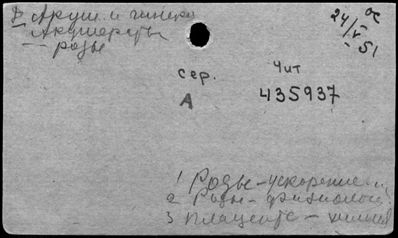 Акуш. и гинек.
Акушерство
— роды
24/V 51
сер. Чит
А 435937
1 Роды – ускорение
2 Роды – физиология
3 Плацента – химия